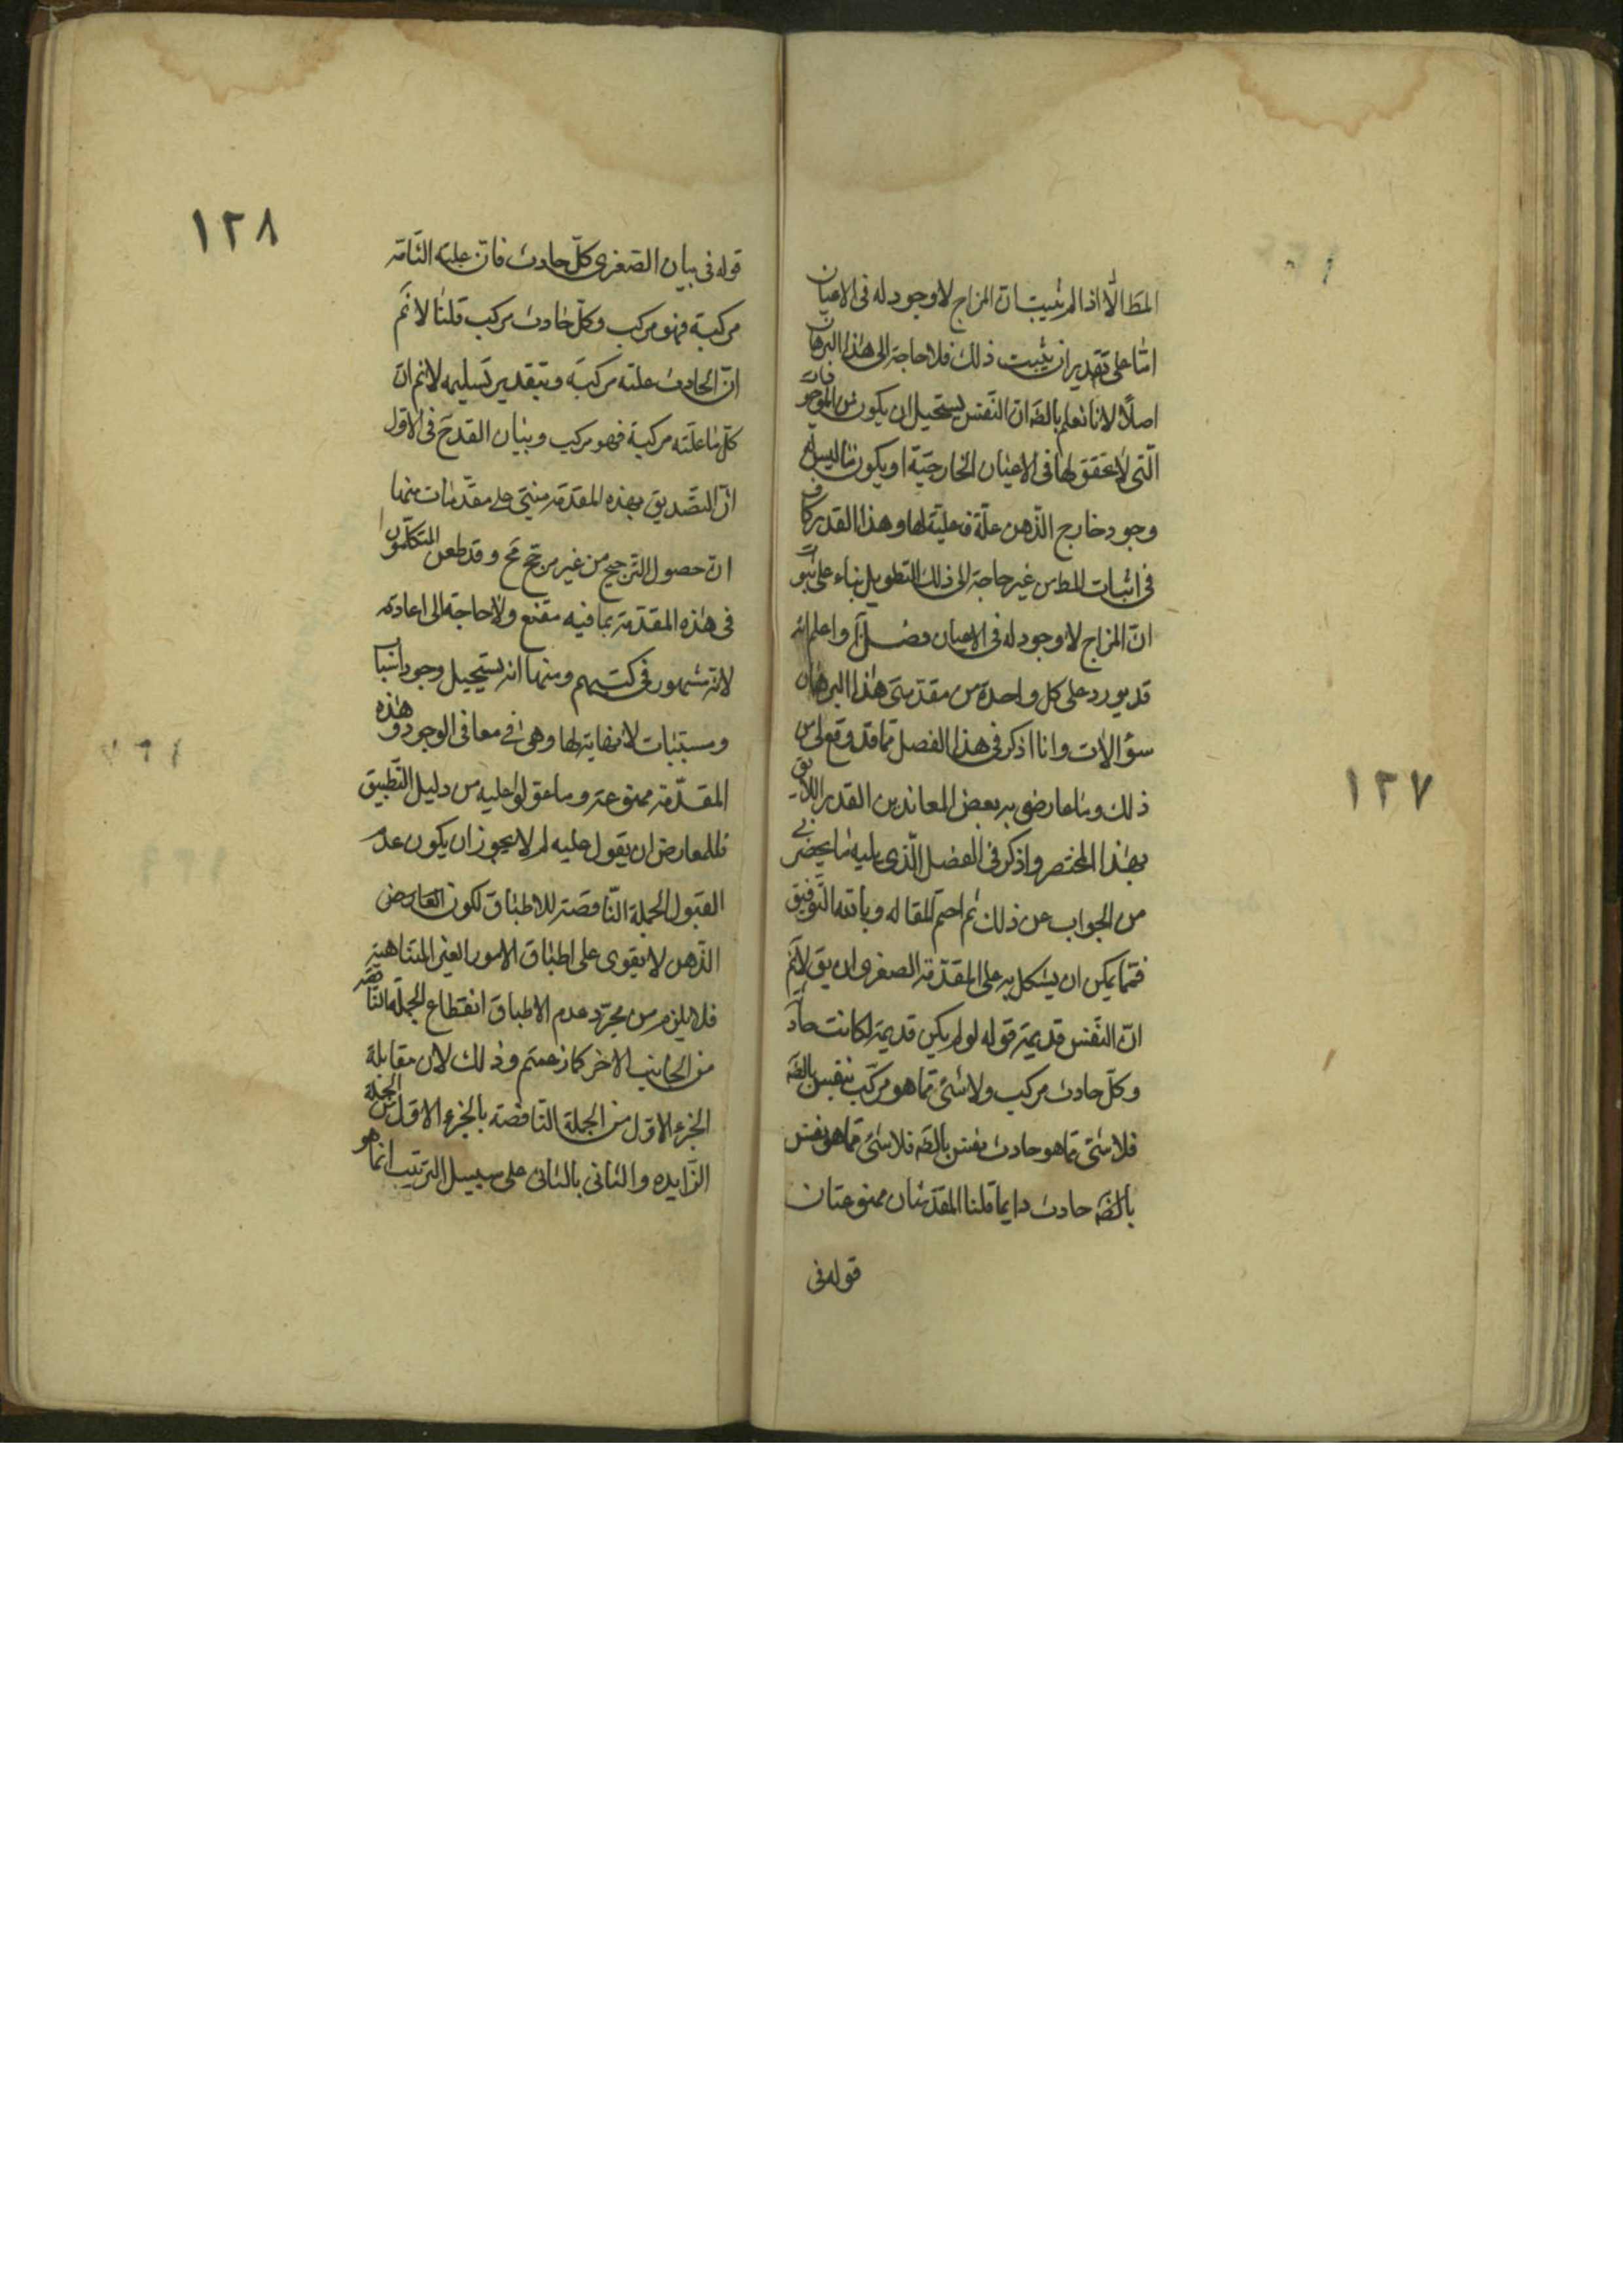 المط الّا اذا لم يثبت ان المزاج لا وجود له فى الاعيان
امّا على تقدير ان يثبت ذلك فلا حاجة الى هذا البرهان
اصلاً لانا نعلم بالضّه انّ النّفس يستحيل ان يكون من الموجودات
الّتى لا تحقق لها فى الاعيان الخارجيّة او يكون ما ليس له
وجود خارج الذّهن علّة فعليّة لها و هذا القدر كاف
فى اثبات المط من غير حاجة الى ذلك التطويل بناء على ثبوت
انّ المزاج لا وجود له فى الاعيان فصل آ و اعلم انّه
قد يورد على كل واحدة من مقدمتى هذا البرهان
سؤالات و انا اذكر فى هذا الفصل ممّا قد وقع لى من
ذلك و ما عارضنى به بعض المعاندين القدر اللايق
بهذا المختصر و اذكر فى الفصل الّذى يليه ما يحضرنى
من الجواب عن ذلك ثم اختم المقاله و بالله التّوفيق
فممّا يمكن ان يشكل به على المقدّمة الصغرى ان يق لانم
انّ النّفس قديمة قوله لو لم يكن قديمة لكانت حادثة
و كلّ حادث مركب و لا شئ ممّا هو مركّب بنفس بالضّه
فلا شئ ممّا هو حادث بنفس بالضّه فلا شئ ممّا هو نفس
بالضّه حادث دايما قلنا المقدّمتان ممنوعتان
قوله فى
١٢٧
١٢٨
قوله فى بيان الصّغرى كلّ حادث فانّ علته التّامّة
مركبة فهو مركب و كلّ حادث مركب قلنا لا نم
انّ الحادث علته مركبة و بتقدير تسليمه لا نم انّ
كلّ ما علّته مركبة فهو مركب و بيان القدح فى الاوّل
انّ التّصديق بهذه المقدّمة مبنىّ على مقدّمات منها
ان حصول التّرجيح من غير مرجّح مح و قد طعن المتكلّمون
فى هذه المقدّمة بما فيه مقنع و لا حاجة الى اعادته
لانّه مشهور فى كتبهم و منها انه يستحيل وجود اسباب
و مسبّبات لا نهاية لها و هى مع فى الوجود و هذه
المقدّمة ممنوعة و ما عوّلوا عليه من دليل التّطبيق
فللمعارض ان يقول عليه لم لا يجوز ان يكون عدم
القبول الجملة النّاقصة للاطباق لكون العارض
الذّهن لا يقوى على اطباق الامور الغير المتناهية
فلا يلزم من مجرّد عدم الاطباق انقطاع الجملة النّاقصة
من الجانب الاخر كما زعمتم و ذلك لان مقابلة
الجزء الاوّل من الجملة النّاقصة بالجزء الاوّل من الجملة
الزّايده و الثانى بالثانى على سبيل الترتيب انّما هو